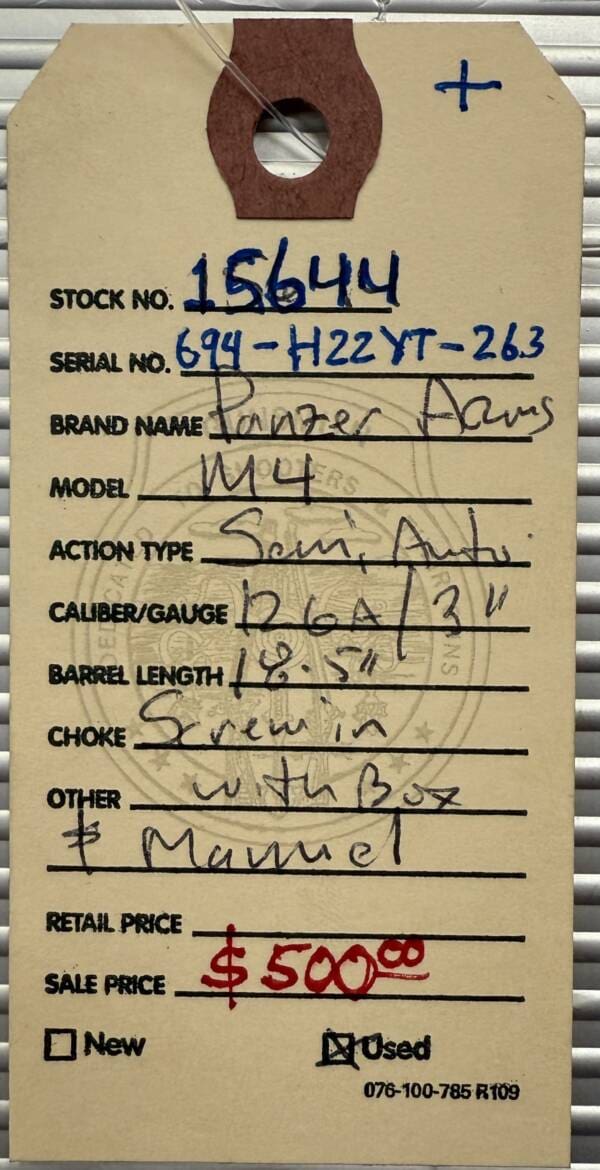 +
STOCK NO. 15644
SERIAL NO. 694-H22YT-263
BRAND NAME Panzer Arms
MODEL M4
ACTION TYPE Semi, Auto.
CALIBER/GAUGE 12GA/3"
BARREL LENGTH 18.5"
CHOKE Screw in
OTHER with Box
& Manuel
RETAIL PRICE
SALE PRICE $500.00
New Used
076-100-785 R109